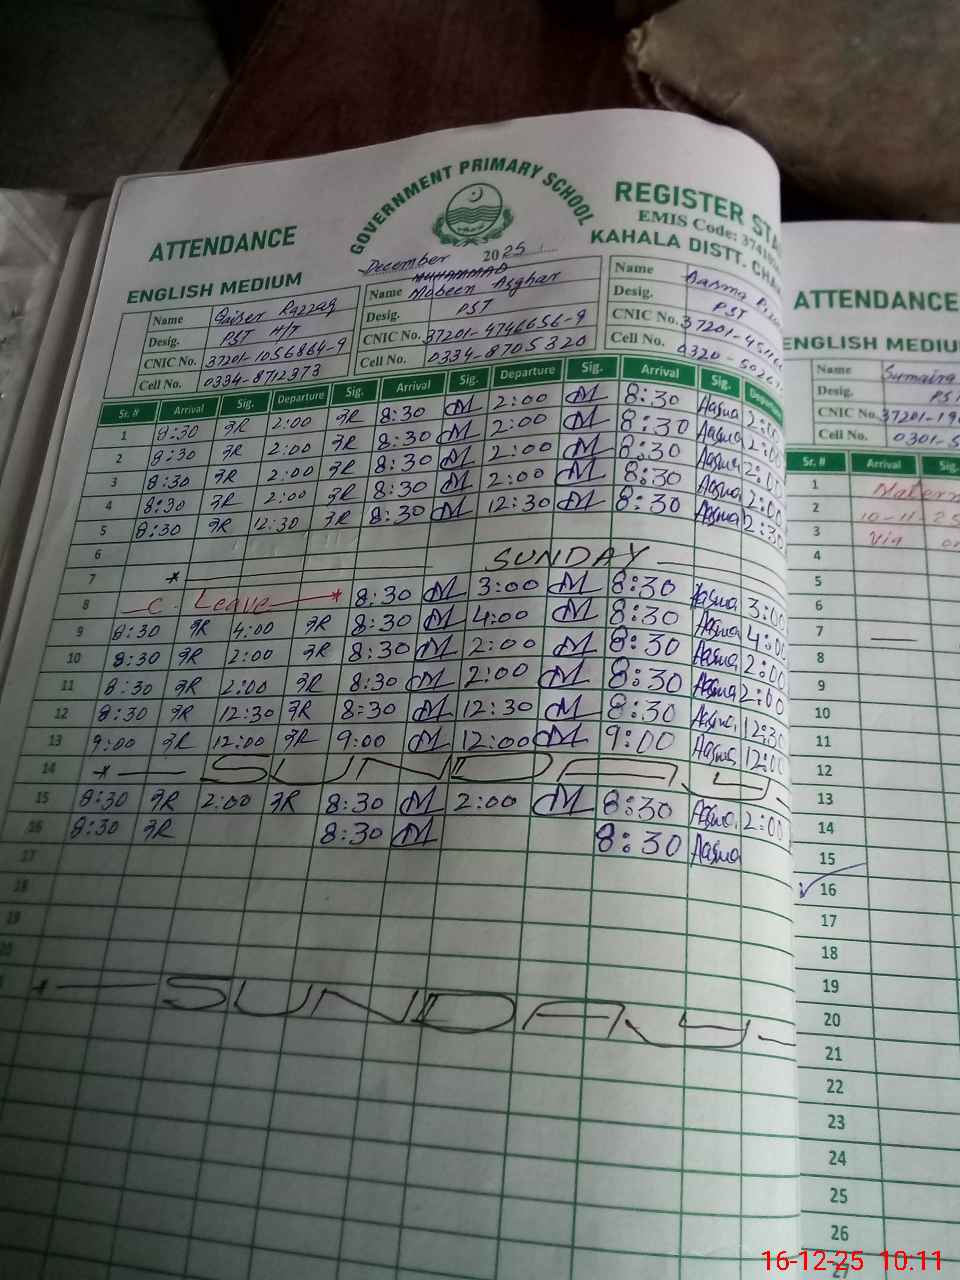 GOVERNMENT PRIMARY SCHOOL
ATTENDANCE
REGISTER
EMIS Code:
KAHALA DISTT.
ENGLISH MEDIUM
December 2025
Name Qaiser Razzaq
Desig. PST H/T
CNIC No. 37201-1056864-9
Cell No. 0334-8712373
MUHAMMAD
Name Mobeen Asghar
Desig. PST
CNIC No. 37201-4746656-9
Cell No. 0334-8705320
Name Aasma
Desig. PST
CNIC No. 37201-
Cell No. 0320-
Sr. # Arrival Sig. Departure Sig. Arrival Sig. Departure Sig. Arrival Sig. Departure
1 8:30 ZR 2:00 ZR 8:30 M 2:00 M 8:30 Aasma 2:00
2 8:30 ZR 2:00 ZR 8:30 M 2:00 M 8:30 Aasma 2:00
3 8:30 ZR 2:00 ZR 8:30 M 2:00 M 8:30 Aasma 2:00
4 8:30 ZR 2:00 ZR 8:30 M 2:00 M 8:30 Aasma 2:00
5 8:30 ZR 12:30 ZR 8:30 M 12:30 M 8:30 Aasma
6
7 SUNDAY
8 C. Leave 8:30 M 3:00 M 8:30 Aasma 3:00
9 8:30 ZR 4:00 ZR 8:30 M 4:00 M 8:30 Aasma 4:00
10 8:30 ZR 2:00 ZR 8:30 M 2:00 M 8:30 Aasma 2:00
11 8:30 ZR 2:00 ZR 8:30 M 2:00 M 8:30 Aasma 2:00
12 8:30 ZR 12:30 ZR 8:30 M 12:30 M 8:30 Aasma 12:30
13 9:00 ZR 12:00 ZR 9:00 M 12:00 M 9:00 Aasma 12:00
14 SUNDAY
15 8:30 ZR 2:00 ZR 8:30 M 2:00 M 8:30 Aasma 2:00
16 8:30 ZR 8:30 M 8:30 Aasma
17
18
19
SUNDAY
ATTENDANCE
ENGLISH
Name Sumaira
Desig.
CNIC No. 37201-
Cell No. 0301-
Sr. # Arrival
1
2 10-11-25
3 Via
4
5
6
7
8
9
10
11
12
13
14
15
16
17
18
19
20
21
22
23
24
25
26
27
16-12-25 10.11